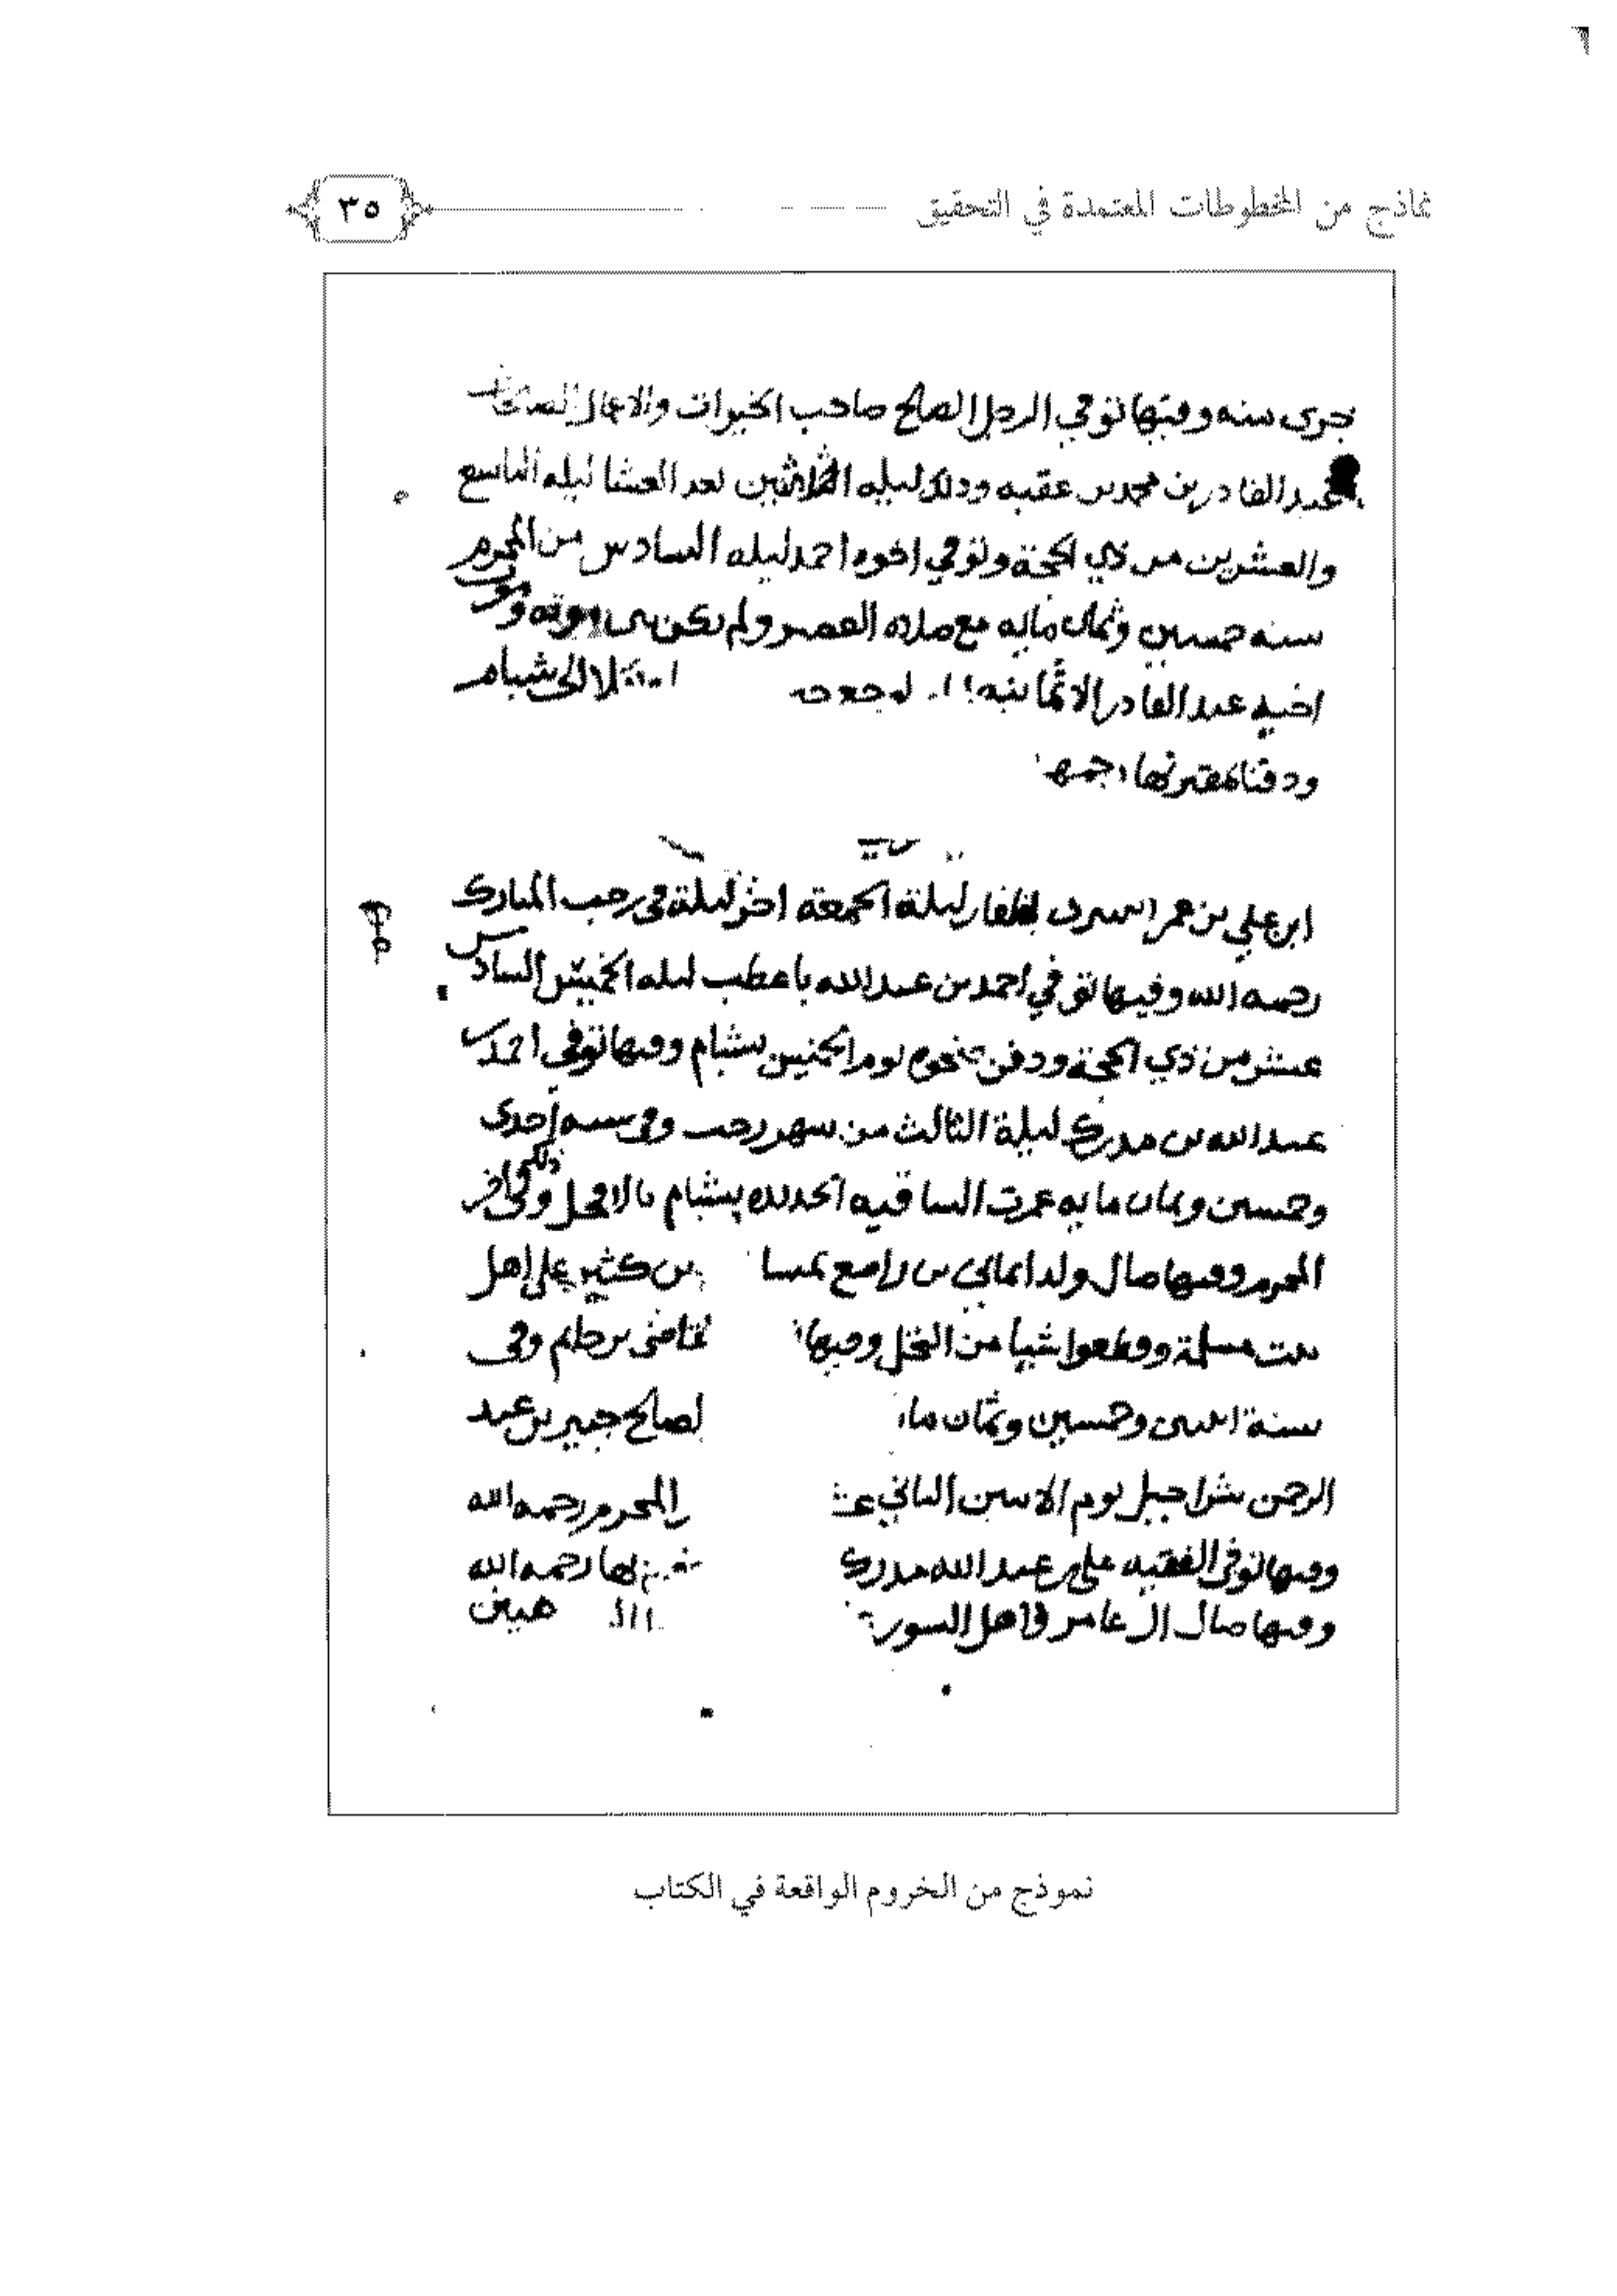 نماذج من المخطوطات المعتمدة في التحقيق
٣٥
جرى سنه وفيها توفي الرجل الصالح صاحب الخيرات والاعمال
عبد القادر بن محمد بن عقبه وذلك ليله الثلاثين بعد العشا ليله التاسع
والعشرين من ذي الحجة وتوفي اخوه احمد ليله السادس من المحرم
سنه خمسين وثمان مايه مع صلاه العصر ولم يكن بين موته وموت
اخيه عبد القادر الا ثمانيه الى شبام
ودفنا بمقبرتها
ابن علي بن عمر بظفار ليلة الجمعة اخر ليلة في رجب المبارك
رحمه الله وفيها توفي احمد بن عبد الله باعطب ليله الخميس السادس
عشر من ذي الحجة ودفن يوم الخميس بشبام وفيها توفي احمد بن
عبد الله بن مدرك ليلة الثالث من شهر رجب وفي سنه احدى
وخمسين وثمان مايه عمرت الساقيه الحديده بشبام وذلك في اخر
المحرم وفيها صال ولد يماني بن راصع بن كثير على اهل
بيت مسلمة وقطعوا شيا من النخل وفيها وفي
سنة اثنين وخمسين وثمان لصالح جبير بن عبد
الرحمن شراحيل يوم الاثنين الثاني المحرم رحمه الله
وفيها توفي الفقيه علي بن عبد الله مدرك رحمه الله
وفيها صال ال عامر واهل السور هينن
نموذج من الخروم الواقعة في الكتاب